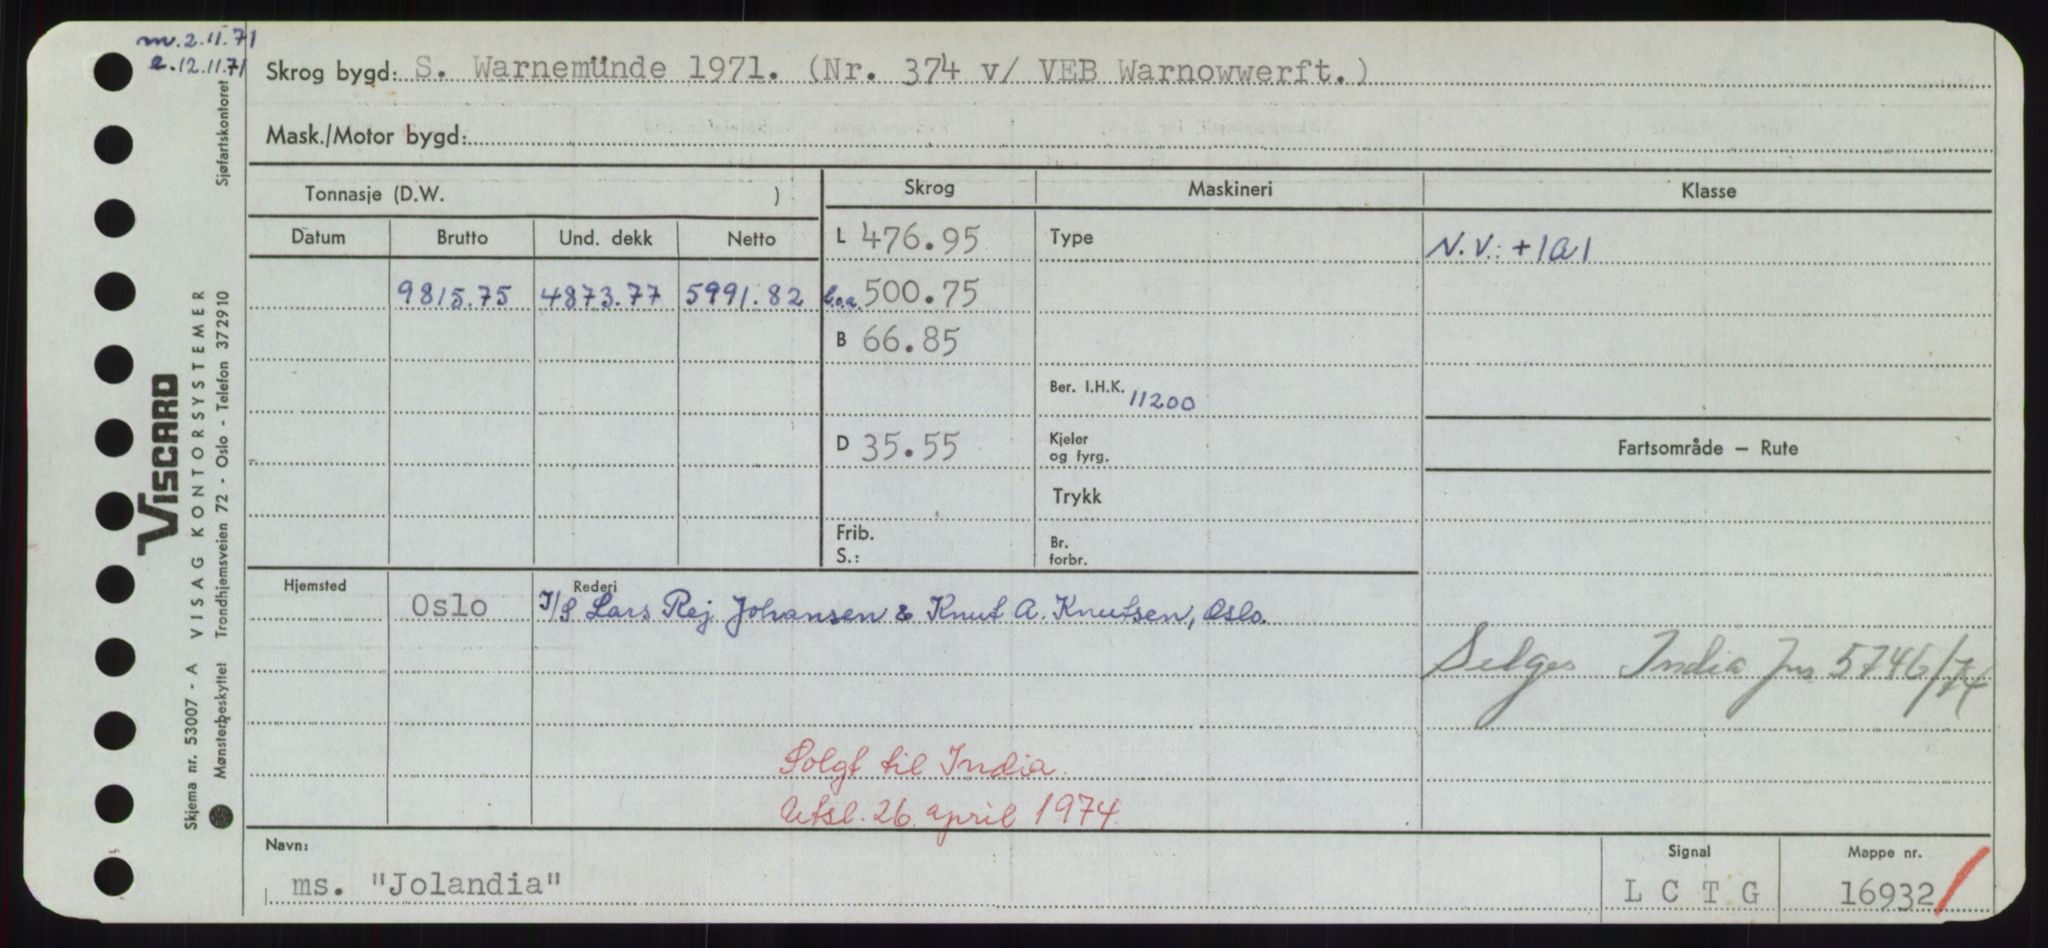 m. 2.11.71
a. 12.11.71
Skrog bygd: S. Warnemünde 1971. (Nr. 374 v/ VEB Warnowwerft.)
Mask./Motor bygd:
Tonnasje (D.W. )
Skrog
Maskineri
Klasse
Datum Brutto Und. dekk Netto
L 476.95
Type
N.V.: +1A1
9815.75 4873.77 5991.82
l.o.a. 500.75
B 66.85
Ber. I.H.K. 11200
D 35.55
Kjeler
og fyrg.
Fartsområde — Rute
Trykk
Frib.
S.:
Br.
forbr.
Hjemsted
Oslo
Rederi
I/S Lars Rej Johansen & Knut A. Knutsen, Oslo.
Selges India Jnr 5746/74
Solgt til India.
Utsl. 26. april 1974.
Navn:
ms. "Jolandia"
Signal
L C T G
Mappe nr.
16932
Viscard
VISAG KONTORSYSTEMER
Skjema nr. 53007 - A
Mønsterbeskyttet Trondhjemsveien 72 - Oslo - Telefon 372910
Sjøfartskontoret